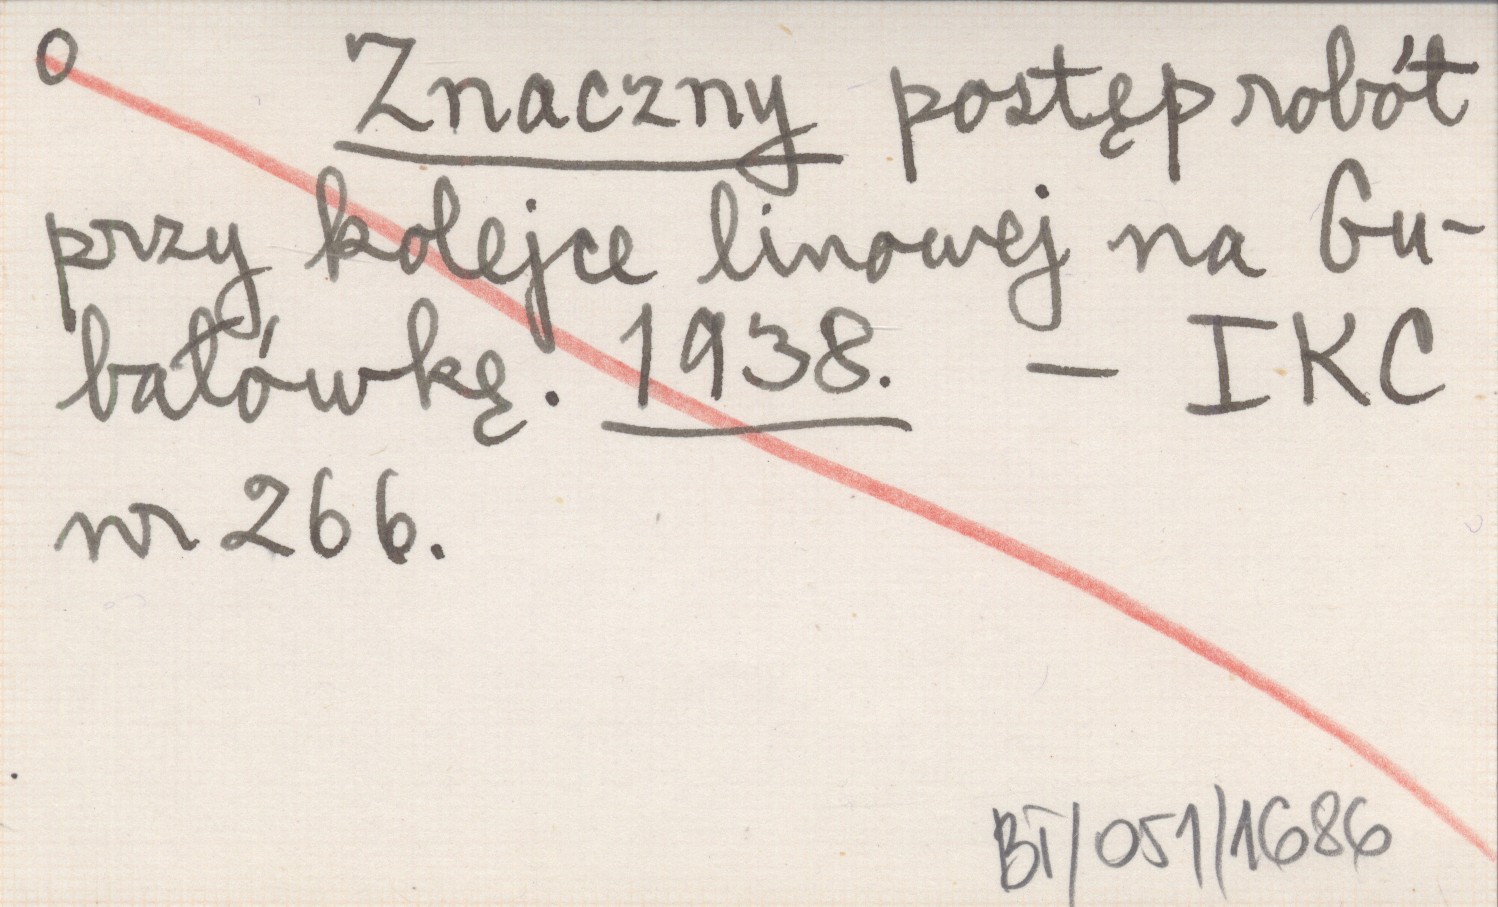 O Znaczny postęp robót
przy kolejce linowej na Gu-
bałówkę. 1938. — IKC
nr 266.
BT/051/1686